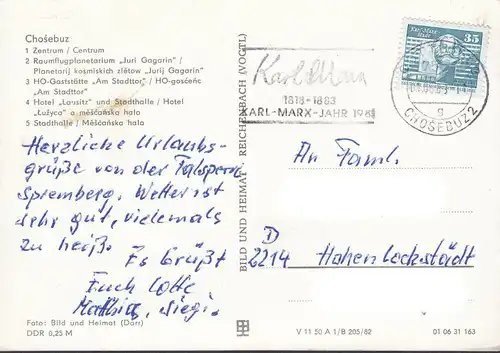 Chośebuz
1 Zentrum / Centrum
2 Raumflugplanetarium „Juri Gagarin“ /
Planetarij kosmiskich zlětow „Jurij Gagarin“
3 HO-Gaststätte „Am Stadttor“ / HO-gosćeńc
„Am Stadttor“
4 Hotel „Lausitz“ und Stadthalle / Hotel
„Łužyca“ a měšćańska hala
5 Stadthalle / Měšćańska hala
Herzliche Urlaubs-
grüße von der Talsperre
Spremberg. Wetter ist
sehr gut, vielemals
zu heiß.
Es Grüßt
Euch Lotte
Matthias, Siegi.
Foto: Bild und Heimat (Darr)
DDR 0,25 M
BILD UND HEIMAT · REICHENBACH (VOGTL)
Karl Marx
1818-1883
KARL-MARX-JAHR 198
35
CHOŚEBUZ 2
g
An Faml.
D
2214 Hohenlockstädt
V 11 50 A 1/B 205/82
01 06 31 163